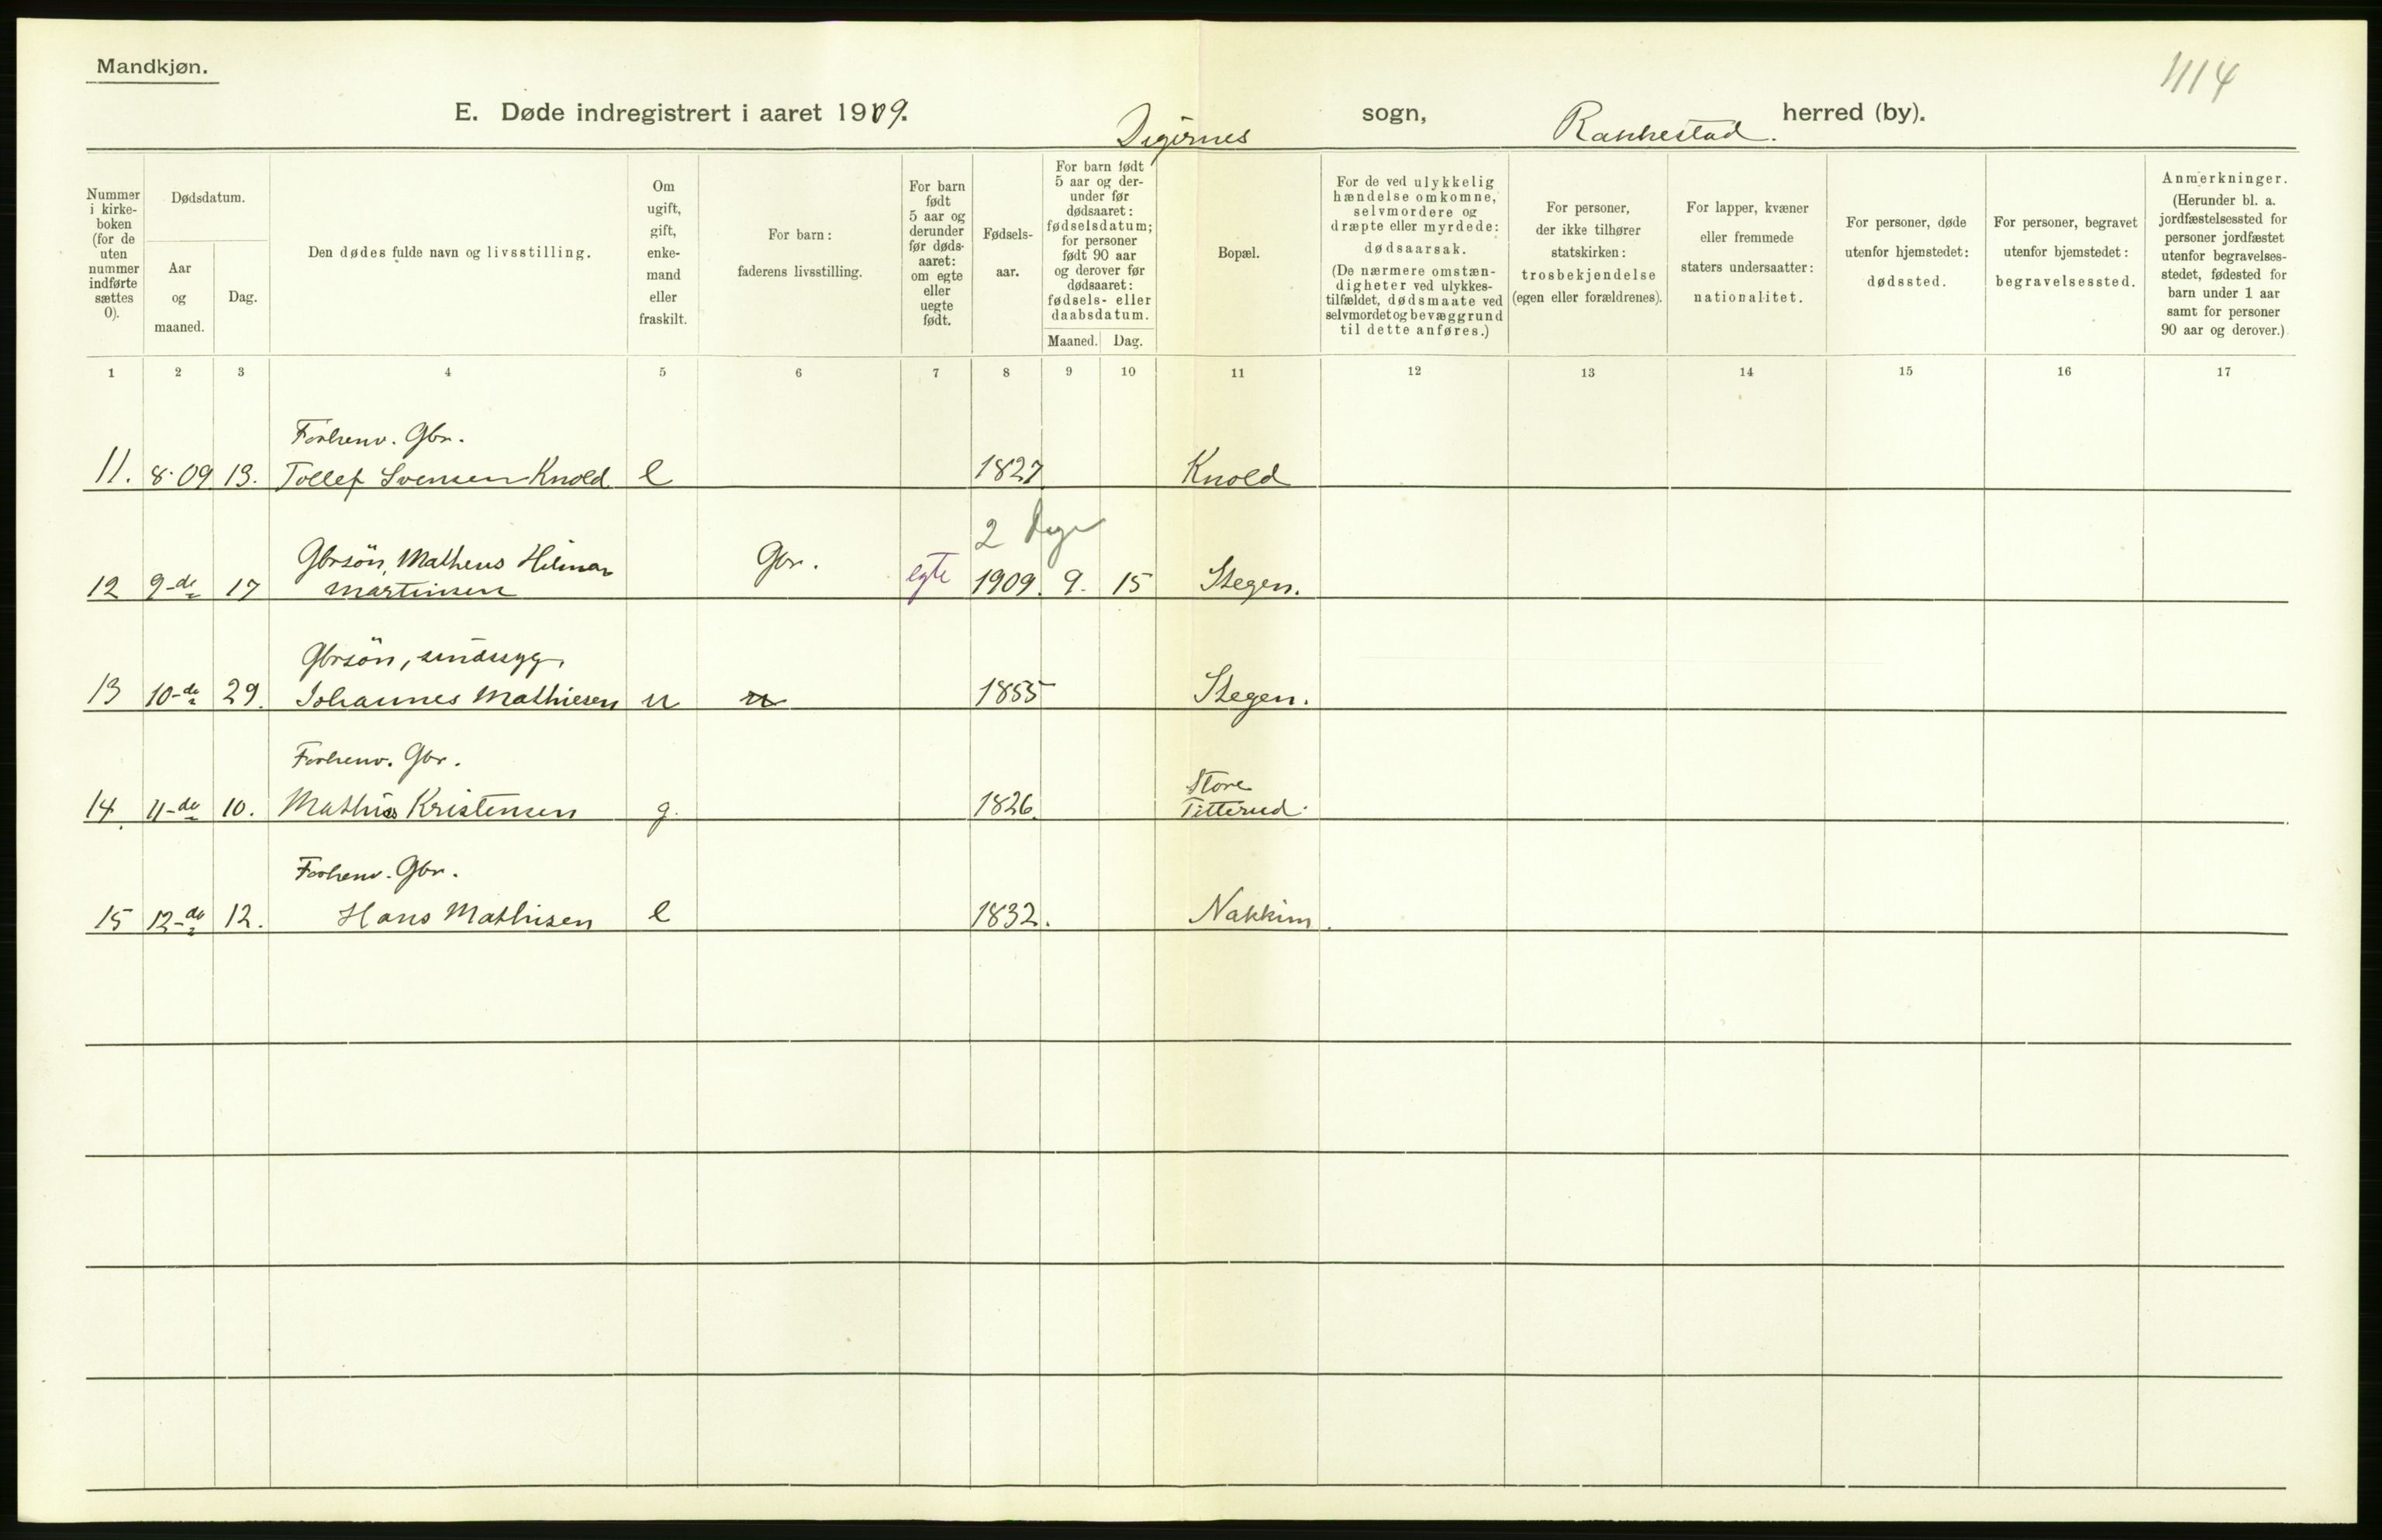 Mandkjøn.
1114
E. Døde indregistrert i aaret 1909. Degernes sogn, Rakkestad. herred (by).
Nummer i kirke- boken (for de uten nummer indførte sættes 0).
Dødsdatum.
Aar og maaned.
Dag.
Den dødes fulde navn og livsstilling.
Om ugift, gift, enke- mand eller fraskilt.
For barn: faderens livsstilling.
For barn født 5 aar og derunder før døds- aaret: om egte eller uegte født.
Fødsels- aar.
For barn født 5 aar og der- under før dødsaaret: fødselsdatum; for personer født 90 aar og derover før dødsaaret: fødsels- eller daabsdatum.
Maaned. Dag.
Bopæl.
For de ved ulykkelig hændelse omkomne, selvmordere og dræpte eller myrdede: dødsaarsak. (De nærmere omstæn- digheter ved ulykkes- tilfældet, dødsmaate ved selvmordet og bevæggrund til dette anføres.)
For personer, der ikke tilhører statskirken: trosbekjendelse (egen eller forældrenes).
For lapper, kvæner eller fremmede staters undersaatter: nationalitet.
For personer, døde utenfor hjemstedet: dødssted.
For personer, begravet utenfor bjemstedet: begravelsessted.
Anmerkninger. (Herunder bl. a. jordfæstelsessted for personer jordfæstet utenfor begravelses- stedet, fødested for barn under 1 aar samt for personer 90 aar og derover.)
1 2 3 4 5 6 7 8 9 10 11 12 13 14 15 16 17
Forhenv. Gbr.
11. 8-09 13. Tollef Svensen Knold e 1827 Knold
2 Dage
Gbrsön, Matheus Hilmar
12 9-de 17 Martinsen Gbr. egte 1909. 9. 15 Stegen.
Gbrsön, sindssyg,
13 10-de 29. Johannes Mathiesen u u 1855 Stegen.
Forhenv. Gbr.
Store
14. 11-de 10. Mathias Kristensen g. 1826. Titterud.
Forhenv. Gbr.
15 12-de 12. Hans Mathisen e 1832. Nakkim.